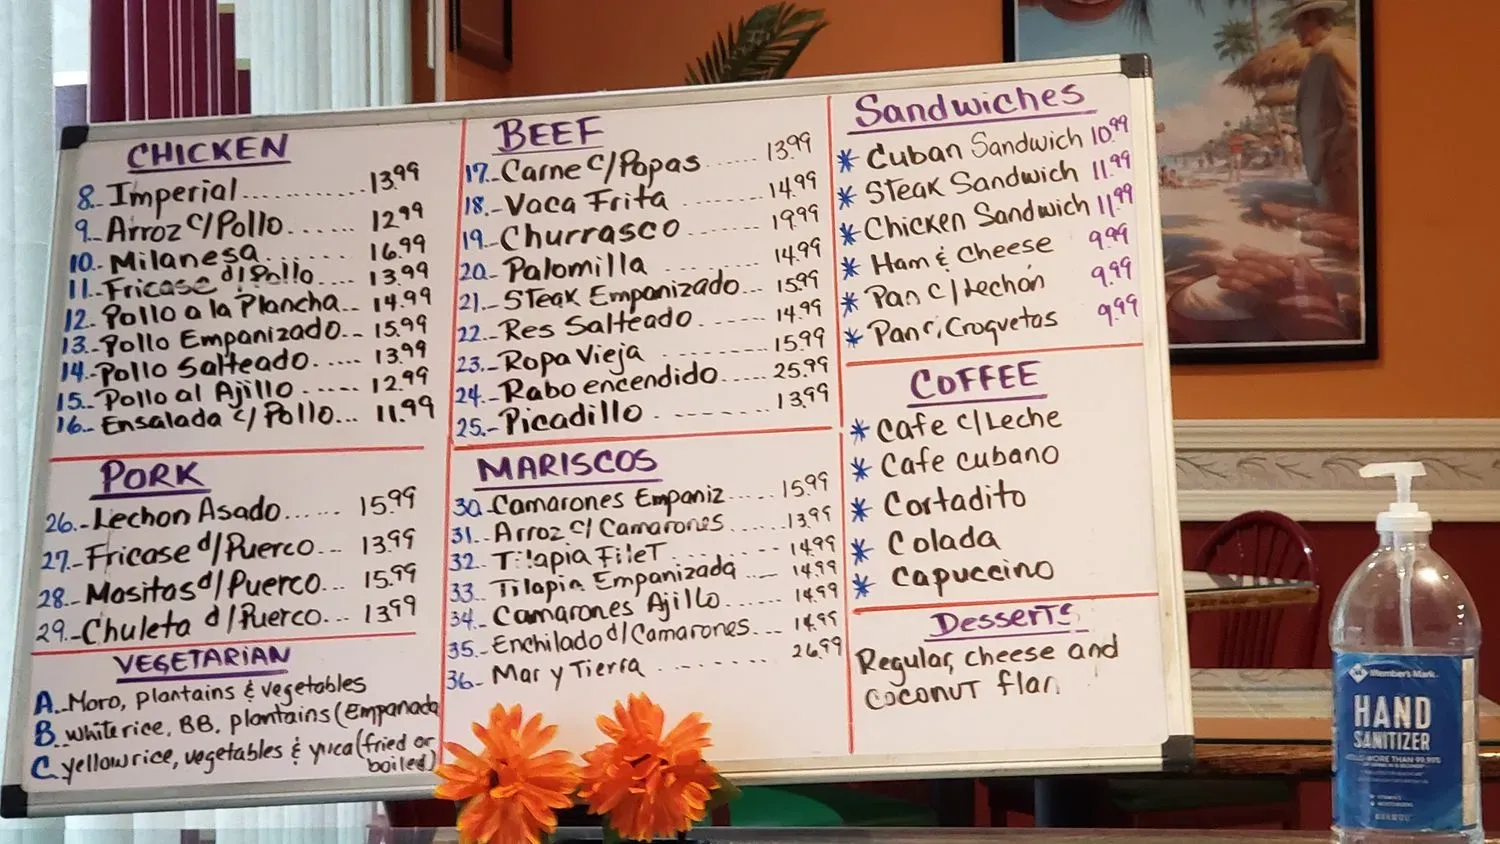 CHICKEN
8.. Imperial............. 13.99
9.. Arroz c/Pollo...... 12.99
10.. Milanesa......... 16.99
11.. Fricase d/Pollo.... 13.99
12.. Pollo a la Plancha... 14.99
13.. Pollo Empanizado... 15.99
14.. Pollo Salteado..... 13.99
15.. Pollo al Ajillo..... 12.99
16.. Ensalada c/Pollo... 11.99
PORK
26.. Lechon Asado...... 15.99
27.. Fricase d/Puerco... 13.99
28.. Masitas d/Puerco... 15.99
29.. Chuleta d/Puerco... 13.99
VEGETARIAN
A.. Moro, plantains & vegetables
B.. White rice, BB, plantains (Empanada
C. yellow rice, vegetables & yuca (fried or
boiled)
BEEF
17.. Carne c/Papas...... 13.99
18.. Vaca Frita ....... 14.99
19.. Churrasco ........ 19.99
20.. Palomilla ........ 14.99
21.. STeak Empanizado... 15.99
22.. Res Salteado ...... 14.99
23.. Ropa Vieja ........ 15.99
24.. Rabo encendido..... 25.99
25.. Picadillo ........ 13.99
MARISCOS
30. Camarones Empaniz..... 15.99
31.. Arroz c/ Camarones...... 13.99
32.. Tilapia FileT ........ 14.99
33.. Tilapia Empanizada .... 14.99
34.. Camarones Ajillo...... 14.99
35.. Enchilado d/Camarones... 14.99
36.. Mar y Tierra ........ 26.99
Sandwiches
* Cuban Sandwich 10.99
* STeak Sandwich 11.99
* Chicken Sandwich 11.99
* Ham & Cheese 9.99
* Pan c/Lechón 9.99
* Pan c. Croquetas 9.99
COFFEE
* Cafe c/Leche
* Cafe cubano
* Cortadito
* Colada
* Capuccino
Desserts
Regular, cheese and
coconuT flan
Member's Mark
HAND
SANITIZER